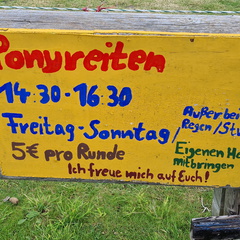 Ponyreiten
14:30-16:30
Freitag-Sonntag/
5€ pro Runde
Ich freue mich auf Euch!
Außer bei
Regen/Stu
Eigenen He
mitbringen